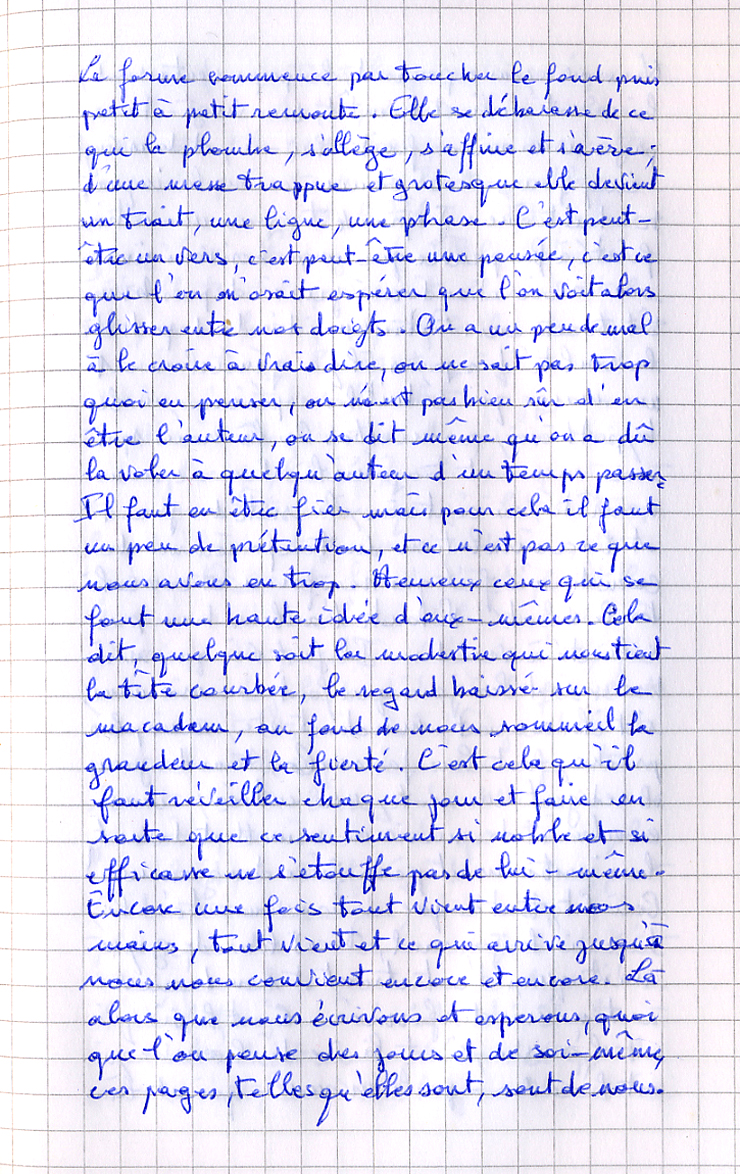 La forme commence par toucher le fond puis
petit à petit remonte. Elle se débarasse de ce
qui la plombe, s'allège, s'affine et s'avère ;
d'une masse trappue et grotesque elle devient
un trait, une ligne, une phrase. C'est peut-
être un vers, c'est peut-être une pensée, c'est ce
que l'on n'osait espérer que l'on voit alors
glisser entre nos doigts. On a un peu de mal
à le croire à vrais dire, on ne sait pas trop
quoi en penser, on n'est pas bien sûr d'en
être l'auteur, on se dit même qu'on a dû
la voler à quelqu'auteur d'un temps passer.
Il faut en être fier mais pour cela il faut
un peu de prétention, et ce n'est pas ce que
nous avons en trop. Heureux ceux qui se
font une haute idée d'eux-mêmes. Cela
dit, quelque soit la modestie qui nous tient
la tête courbée, le regard baissé sur le
macadam, au fond de nous sommeil la
grandeur et la fierté. C'est cela qu'il
faut réveiller chaque jour et faire en
sorte que ce sentiment si noble et si
efficasse ne s'étouffe pas de lui-même.
Encore une fois tout vient entre nos
mains, tout vient et ce qui arrive jusqu'à
nous nous convient encore et encore. Là
alors que nous écrivons et esperons, quoi
que l'on pense des jours et de soi-même,
ces pages, telles qu'elles sont, sont de nous.